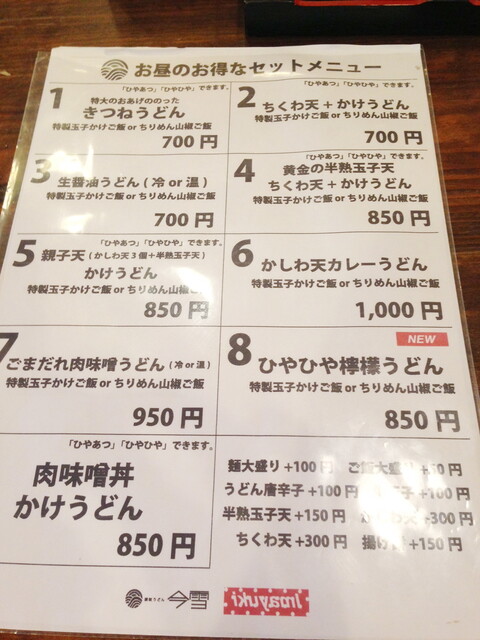 お昼のお得なセットメニュー
1
「ひやあつ」「ひやひや」できます。
特大のおあげののった
きつねうどん
特製玉子かけご飯 or ちりめん山椒ご飯
700 円
2
「ひやあつ」「ひやひや」できます。
ちくわ天 + かけうどん
特製玉子かけご飯 or ちりめん山椒ご飯
700 円
3
生醤油うどん ( 冷 or 温 )
特製玉子かけご飯 or ちりめん山椒ご飯
700 円
4
「ひやあつ」「ひやひや」できます。
黄金の半熟玉子天
ちくわ天 + かけうどん
特製玉子かけご飯 or ちりめん山椒ご飯
850 円
5
「ひやあつ」「ひやひや」できます。
親子天 ( かしわ天 3 個 + 半熟玉子天 )
かけうどん
特製玉子かけご飯 or ちりめん山椒ご飯
850 円
6
かしわ天カレーうどん
特製玉子かけご飯 or ちりめん山椒ご飯
1,000 円
7
ごまだれ肉味噌うどん ( 冷 or 温 )
特製玉子かけご飯 or ちりめん山椒ご飯
950 円
NEW
8
ひやひや檸檬うどん
特製玉子かけご飯 or ちりめん山椒ご飯
850 円
「ひやあつ」「ひやひや」できます。
肉味噌丼
かけうどん
850 円
麺大盛り +100 円 ご飯大盛り +50 円
うどん唐辛子 +100 円 +100 円
半熟玉子天 +150 円 かしわ天 +300 円
ちくわ天 +300 円 揚げ +150 円
今雪
Imayuki